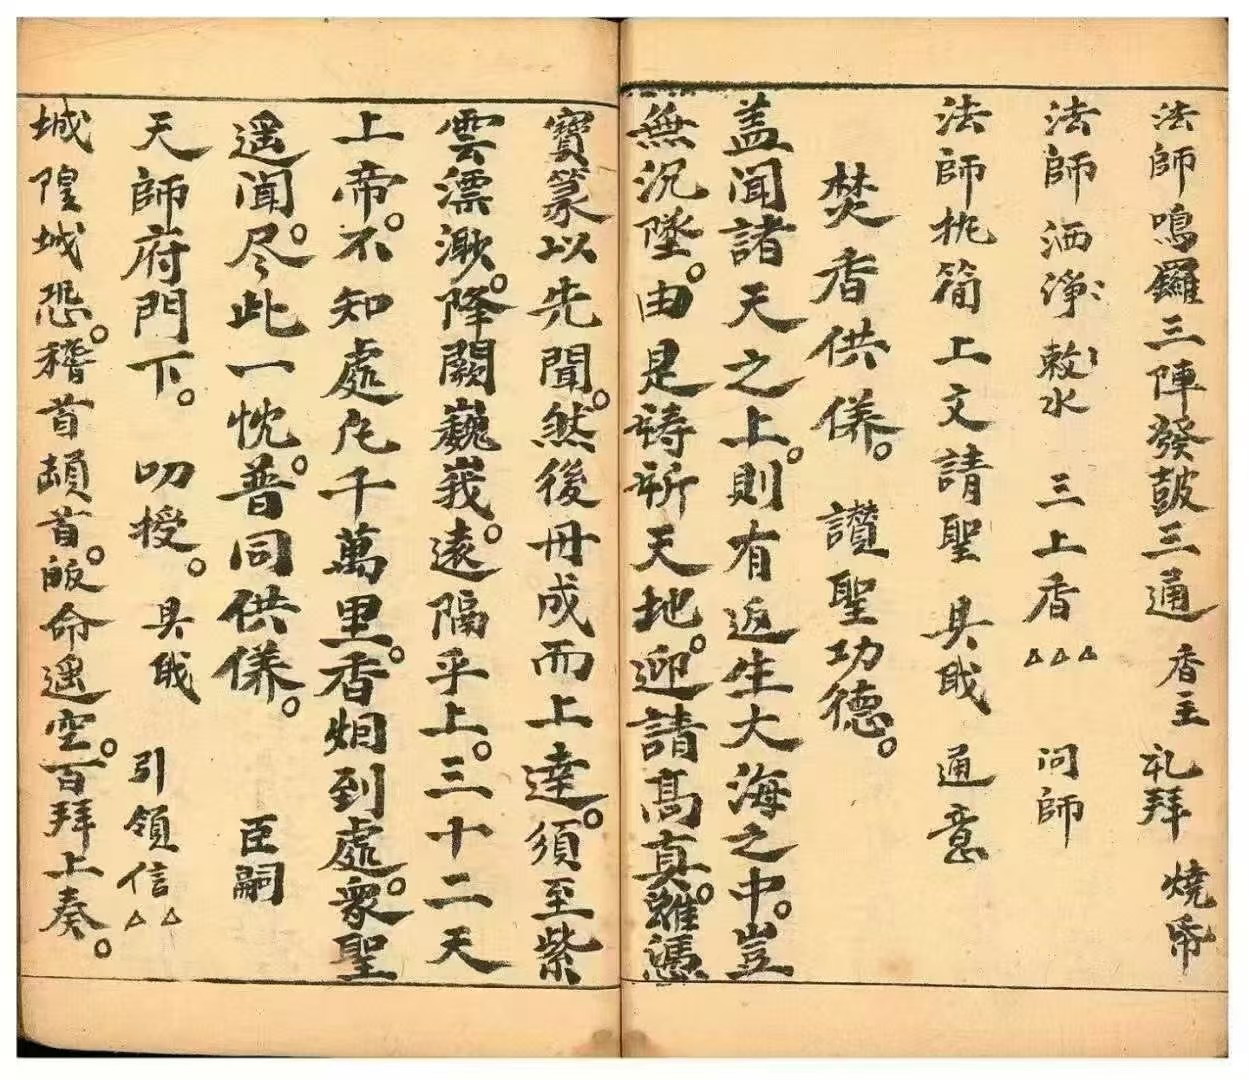 法師鳴鑼三陣發鼓三通 香主 礼拜 燒帋
法師洒淨敕水 三上香△△△ 问師
法師執簡上文請聖 具戠 通意
焚香供养。 讚聖功德。
盖闻諸天之上。則有返生大海之中。豈
無況墜。由是祷祈天地。迎請髙真。雖憑
寶篆以先聞。然後丹成而上達。須至紫
雲漂渺。降闕巍峩。遠隔乎上。三十二天
上帝。不知處凡千萬里。香烟到處。衆聖
遥闻。尽此一忱。普同供养。 臣嗣
天師府門下。 叨授。 具戠 引領信△△
城隍城恐。稽首頓首。皈命遥空。百拜上奏。